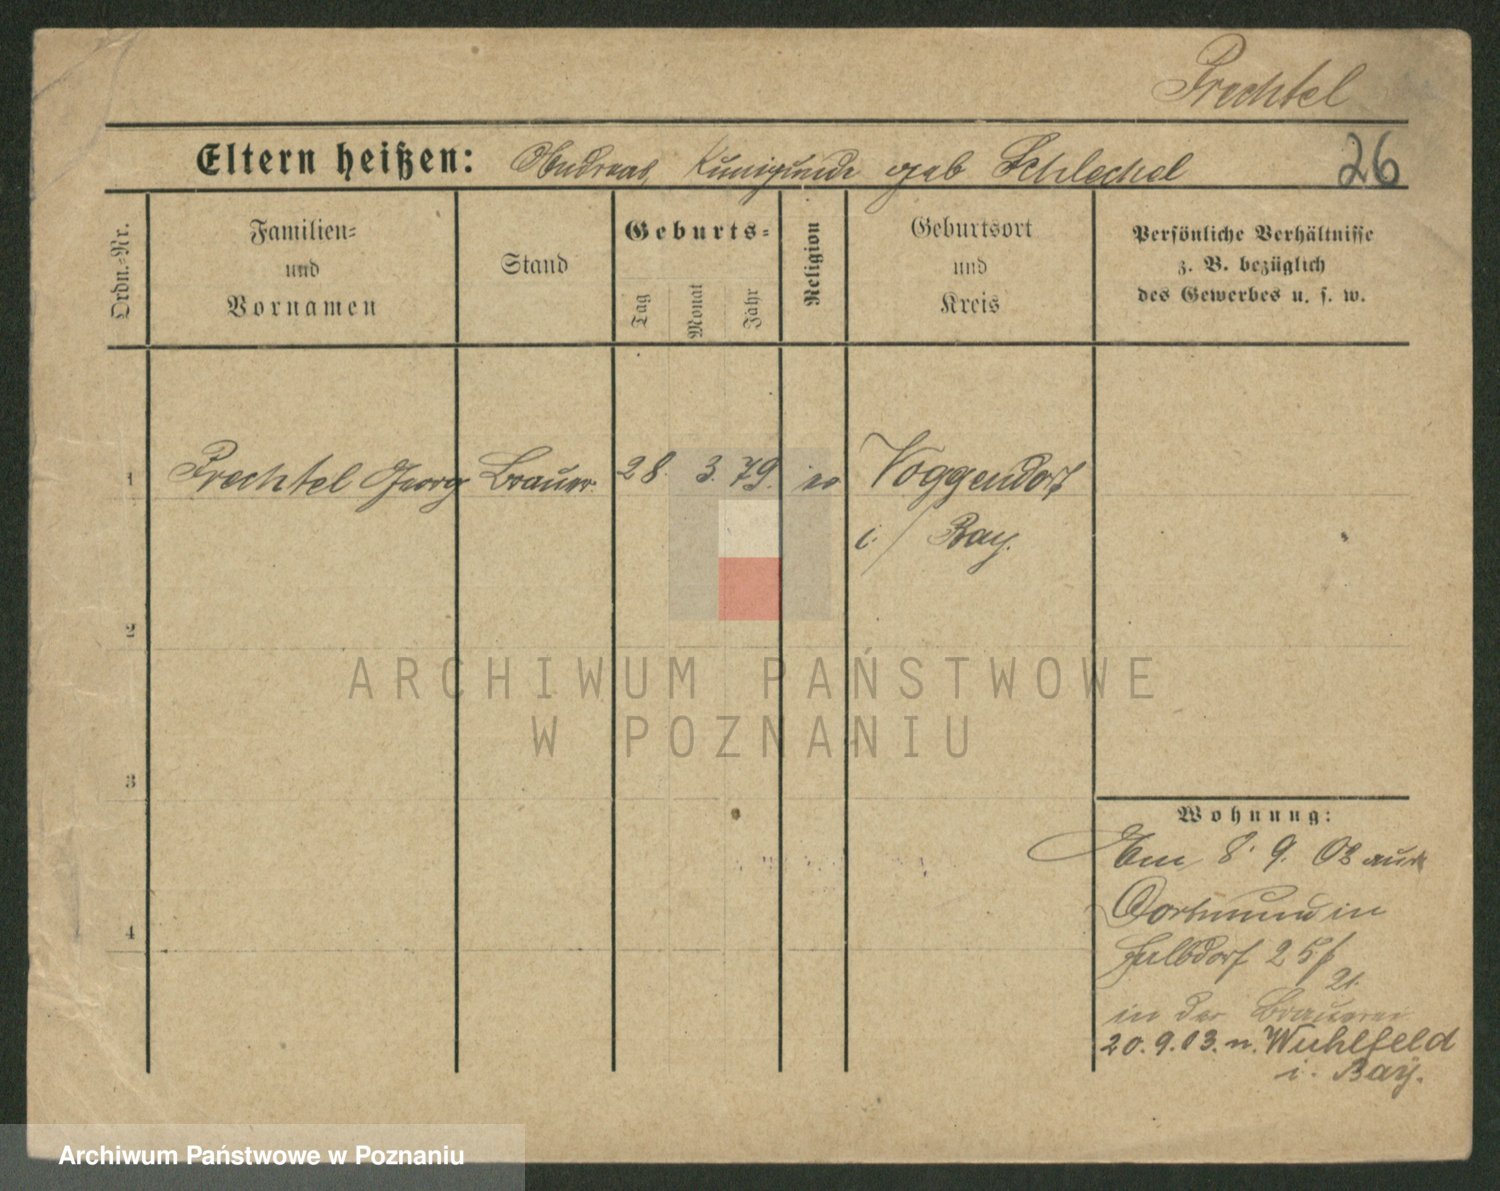 Prechtel
Eltern heißen: Andreas, Kunigunde geb Schlechel
26
Ordn.-Nr.
Familien-
und
Vornamen
Stand
Geburts-
Tag
Monat
Jahr
Religion
Geburtsort
und
Kreis
Persönliche Verhältnisse
z. B. bezüglich
des Gewerbes u. s. w.
1 Prechtel Georg Brauer 28. 3. 79. ev Voggendorf
i/ Bay.
2
3
4
ARCHIWUM PAŃSTWOWE
W POZNANIU
Wohnung:
Am 8. 9. 03 aus
Dortmund in
25/
21.
in der Brauerei
20. 9. 03. n. Wuhlfeld
i. Bay.
Archiwum Państwowe w Poznaniu